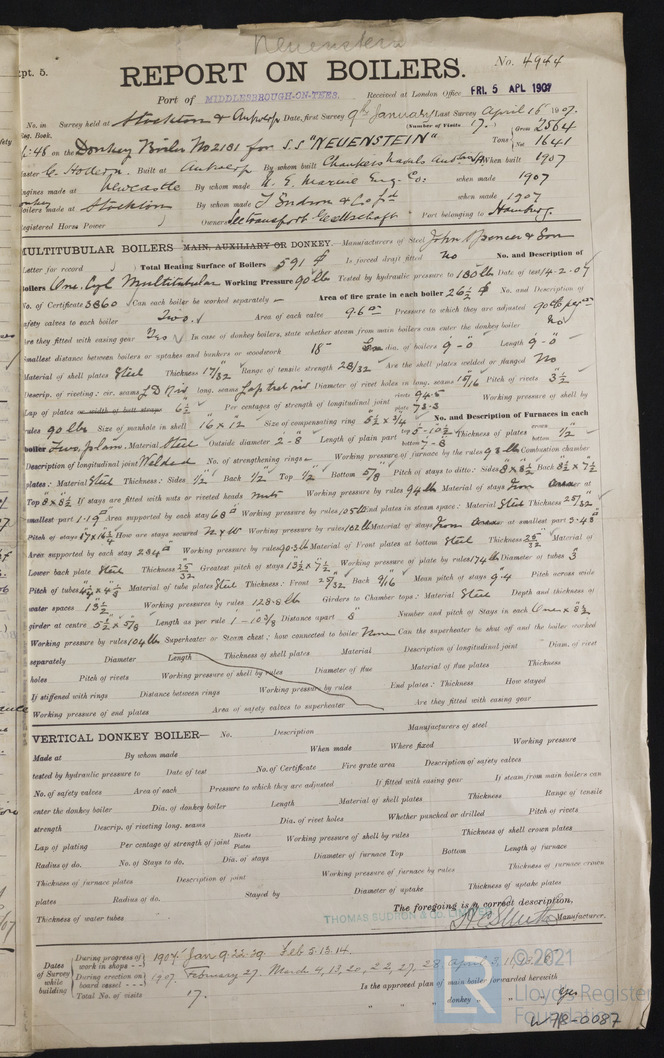 Neuenstein
Rpt. 5.
No. 4944
REPORT ON BOILERS.
Port of MIDDLESBROUGH-ON-TEES. Received at London Office FRI. 5 APL 1907
No. in Survey held at Stockton & Antwerp Date, first Survey 9th January Last Survey April 16 1907.
Reg. Book.
(Number of Visits 17.)
on the Donkey Boiler No 2101 for S.S "NEUENSTEIN" Tons Gross 2564 Net 1641
Built at Antwerp By whom built When built 1907
Engines made at Newcastle By whom made Eng. Co. when made 1907
Boilers made at Stockton By whom made T Sudron & Co Ld when made 1907
Registered Horse Power Owners Port belonging to Hamburg.
MULTITUBULAR BOILERS MAIN, AUXILIARY OR DONKEY.— Manufacturers of Steel John Spencer & Son
Letter for record Total Heating Surface of Boilers 591 Is forced draft fitted No No. and Description of
Boilers One. Cyl Multitubular Working Pressure 90 lb Tested by hydraulic pressure to 180 lb Date of test 14-2-07
No. of Certificate 3860 Can each boiler be worked separately – Area of fire grate in each boiler 26½ No. and Description of
safety valves to each boiler Two. Area of each valve 9.6 Pressure to which they are adjusted 90
Are they fitted with easing gear Yes In case of donkey boilers, state whether steam from main boilers can enter the donkey boiler No
Smallest distance between boilers or uptakes and bunkers or woodwork 18" dia. of boilers 9-0 Length 9-0
Material of shell plates Steel Thickness 17/32 Range of tensile strength 28/32 Are the shell plates welded or flanged No
Descrip. of riveting: cir. seams long. seams Lap Diameter of rivet holes in long. seams 15/16 Pitch of rivets 3½
Lap of plates or width of butt straps 6½ Per centages of strength of longitudinal joint rivets 94.5 plate 73.3 Working pressure of shell by
rules 90 lb Size of manhole in shell 16 x 12 Size of compensating ring 5½ x ¾ No. and Description of Furnaces in each
boiler Two, plain. Material Steel Outside diameter 2-8 Length of plain part top 5-10½ bottom 7-8 Thickness of plates crown bottom ½
Description of longitudinal joint Welded No. of strengthening rings – Working pressure of furnace by the rules 98 lb Combustion chamber
plates: Material Steel Thickness: Sides ½ Back ½ Top ½ Bottom 5/8 Pitch of stays to ditto: Sides 8 x 8½ Back 8½ x 7½
Top 8 x 8½ If stays are fitted with nuts or riveted heads nuts Working pressure by rules 94 lb Material of stays Iron Area at
smallest part 1.19 Area supported by each stay 68 Working pressure by rules 105 lb End plates in steam space: Material Steel Thickness 25/32
Pitch of stays 17 x 16½ How are stays secured N & W Working pressure by rules 102 lb Material of stays Iron Area at smallest part 3.48
Area supported by each stay 284 Working pressure by rules 90.3 lb Material of Front plates at bottom Steel Thickness 25/32 Material of
Lower back plate Steel Thickness 25/32 Greatest pitch of stays 13½ x 7½ Working pressure of plate by rules 174 lb Diameter of tubes 3
Pitch of tubes Material of tube plates Steel Thickness: Front 25/32 Back 9/16 Mean pitch of stays 9.4 Pitch across wide
water spaces 13½ Working pressures by rules 128.8 lb Girders to Chamber tops: Material Steel Depth and thickness of
girder at centre 5½ x 5/8 Length as per rule 1-10 3/8 Distance apart 8 Number and pitch of Stays in each One x 8½
Working pressure by rules 104 lb Superheater or Steam chest: how connected to boiler None Can the superheater be shut off and the boiler worked
separately Diameter Length Thickness of shell plates Material Description of longitudinal joint Diam. of rivet
holes Pitch of rivets Working pressure of shell by rules Diameter of flue Material of flue plates Thickness
If stiffened with rings Distance between rings Working pressure by rules End plates: Thickness How stayed
Working pressure of end plates Area of safety valves to superheater Are they fitted with easing gear
VERTICAL DONKEY BOILER— No. Description Manufacturers of steel
Made at By whom made When made Where fixed Working pressure
tested by hydraulic pressure to Date of test No. of Certificate Fire grate area Description of safety valves
No. of safety valves Area of each Pressure to which they are adjusted If fitted with easing gear If steam from main boilers can
enter the donkey boiler Dia. of donkey boiler Length Material of shell plates Thickness Range of tensile
strength Descrip. of riveting long. seams Dia. of rivet holes Whether punched or drilled Pitch of rivets
Lap of plating Per centage of strength of joint Rivets Plates Working pressure of shell by rules Thickness of shell crown plates
Radius of do. No. of Stays to do. Dia. of stays Diameter of furnace Top Bottom Length of furnace
Thickness of furnace plates Description of joint Working pressure of furnace by rules Thickness of furnace crown
plates Radius of do. Stayed by Diameter of uptake Thickness of uptake plates
Thickness of water tubes
The foregoing is a correct description,
THOMAS SUDRON & CO. LIMITED Manufacturer.
Dates of Survey while building
During progress of work in shops - - 1907. Jan 9. 22. 29. Feb 5. 13. 14.
During erection on board vessel - - - 1907. February 27. March 4, 13, 20, 22, 27, 28. April 3,
Total No. of visits 17.
Is the approved plan of main boiler forwarded herewith
" " " donkey " " " yes
© 2021
Lloyd's Register
Foundation
W78-0087